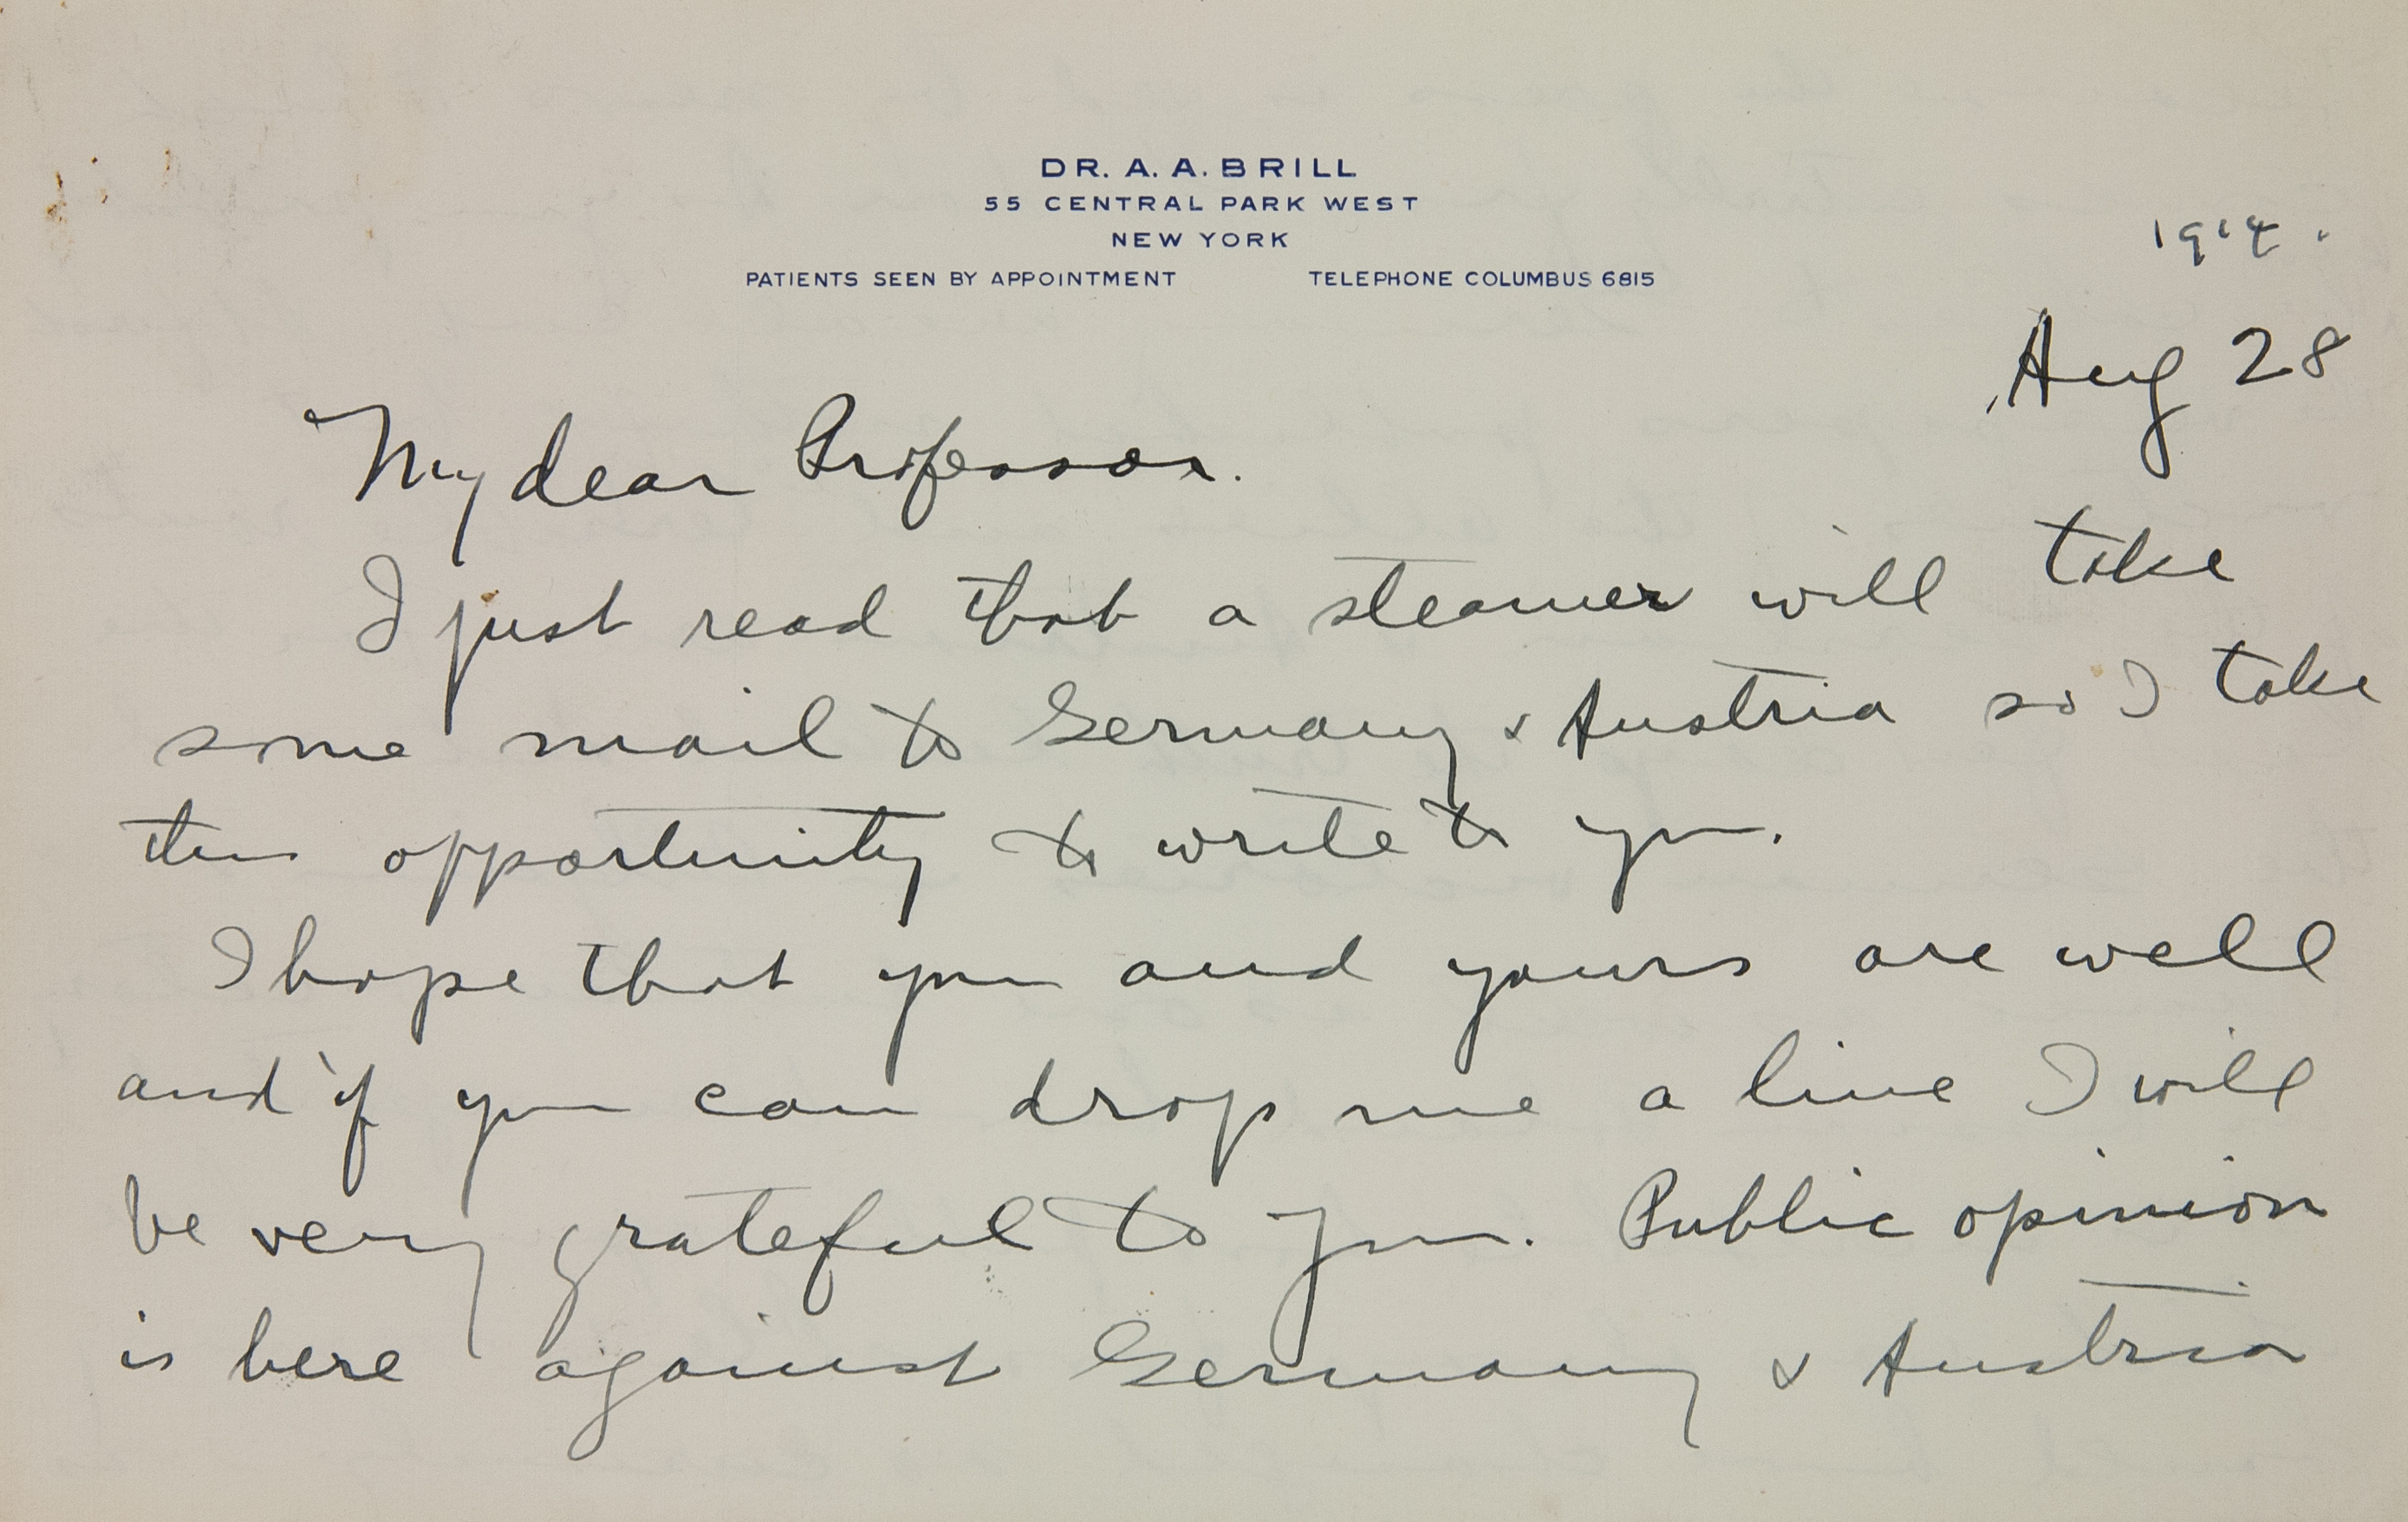 DR. A. A. BRILL
55 CENTRAL PARK WEST
NEW YORK
PATIENTS SEEN BY APPOINTMENT TELEPHONE COLUMBUS 6815
1914.
Aug 28
My dear Professor.
I just read that a steamer will take
some mail to Germany & Austria so I take
this opportunity to write to you.
I hope that you and yours are well
and if you can drop me a line I will
be very grateful to you. Public opinion
is here against Germany & Austria